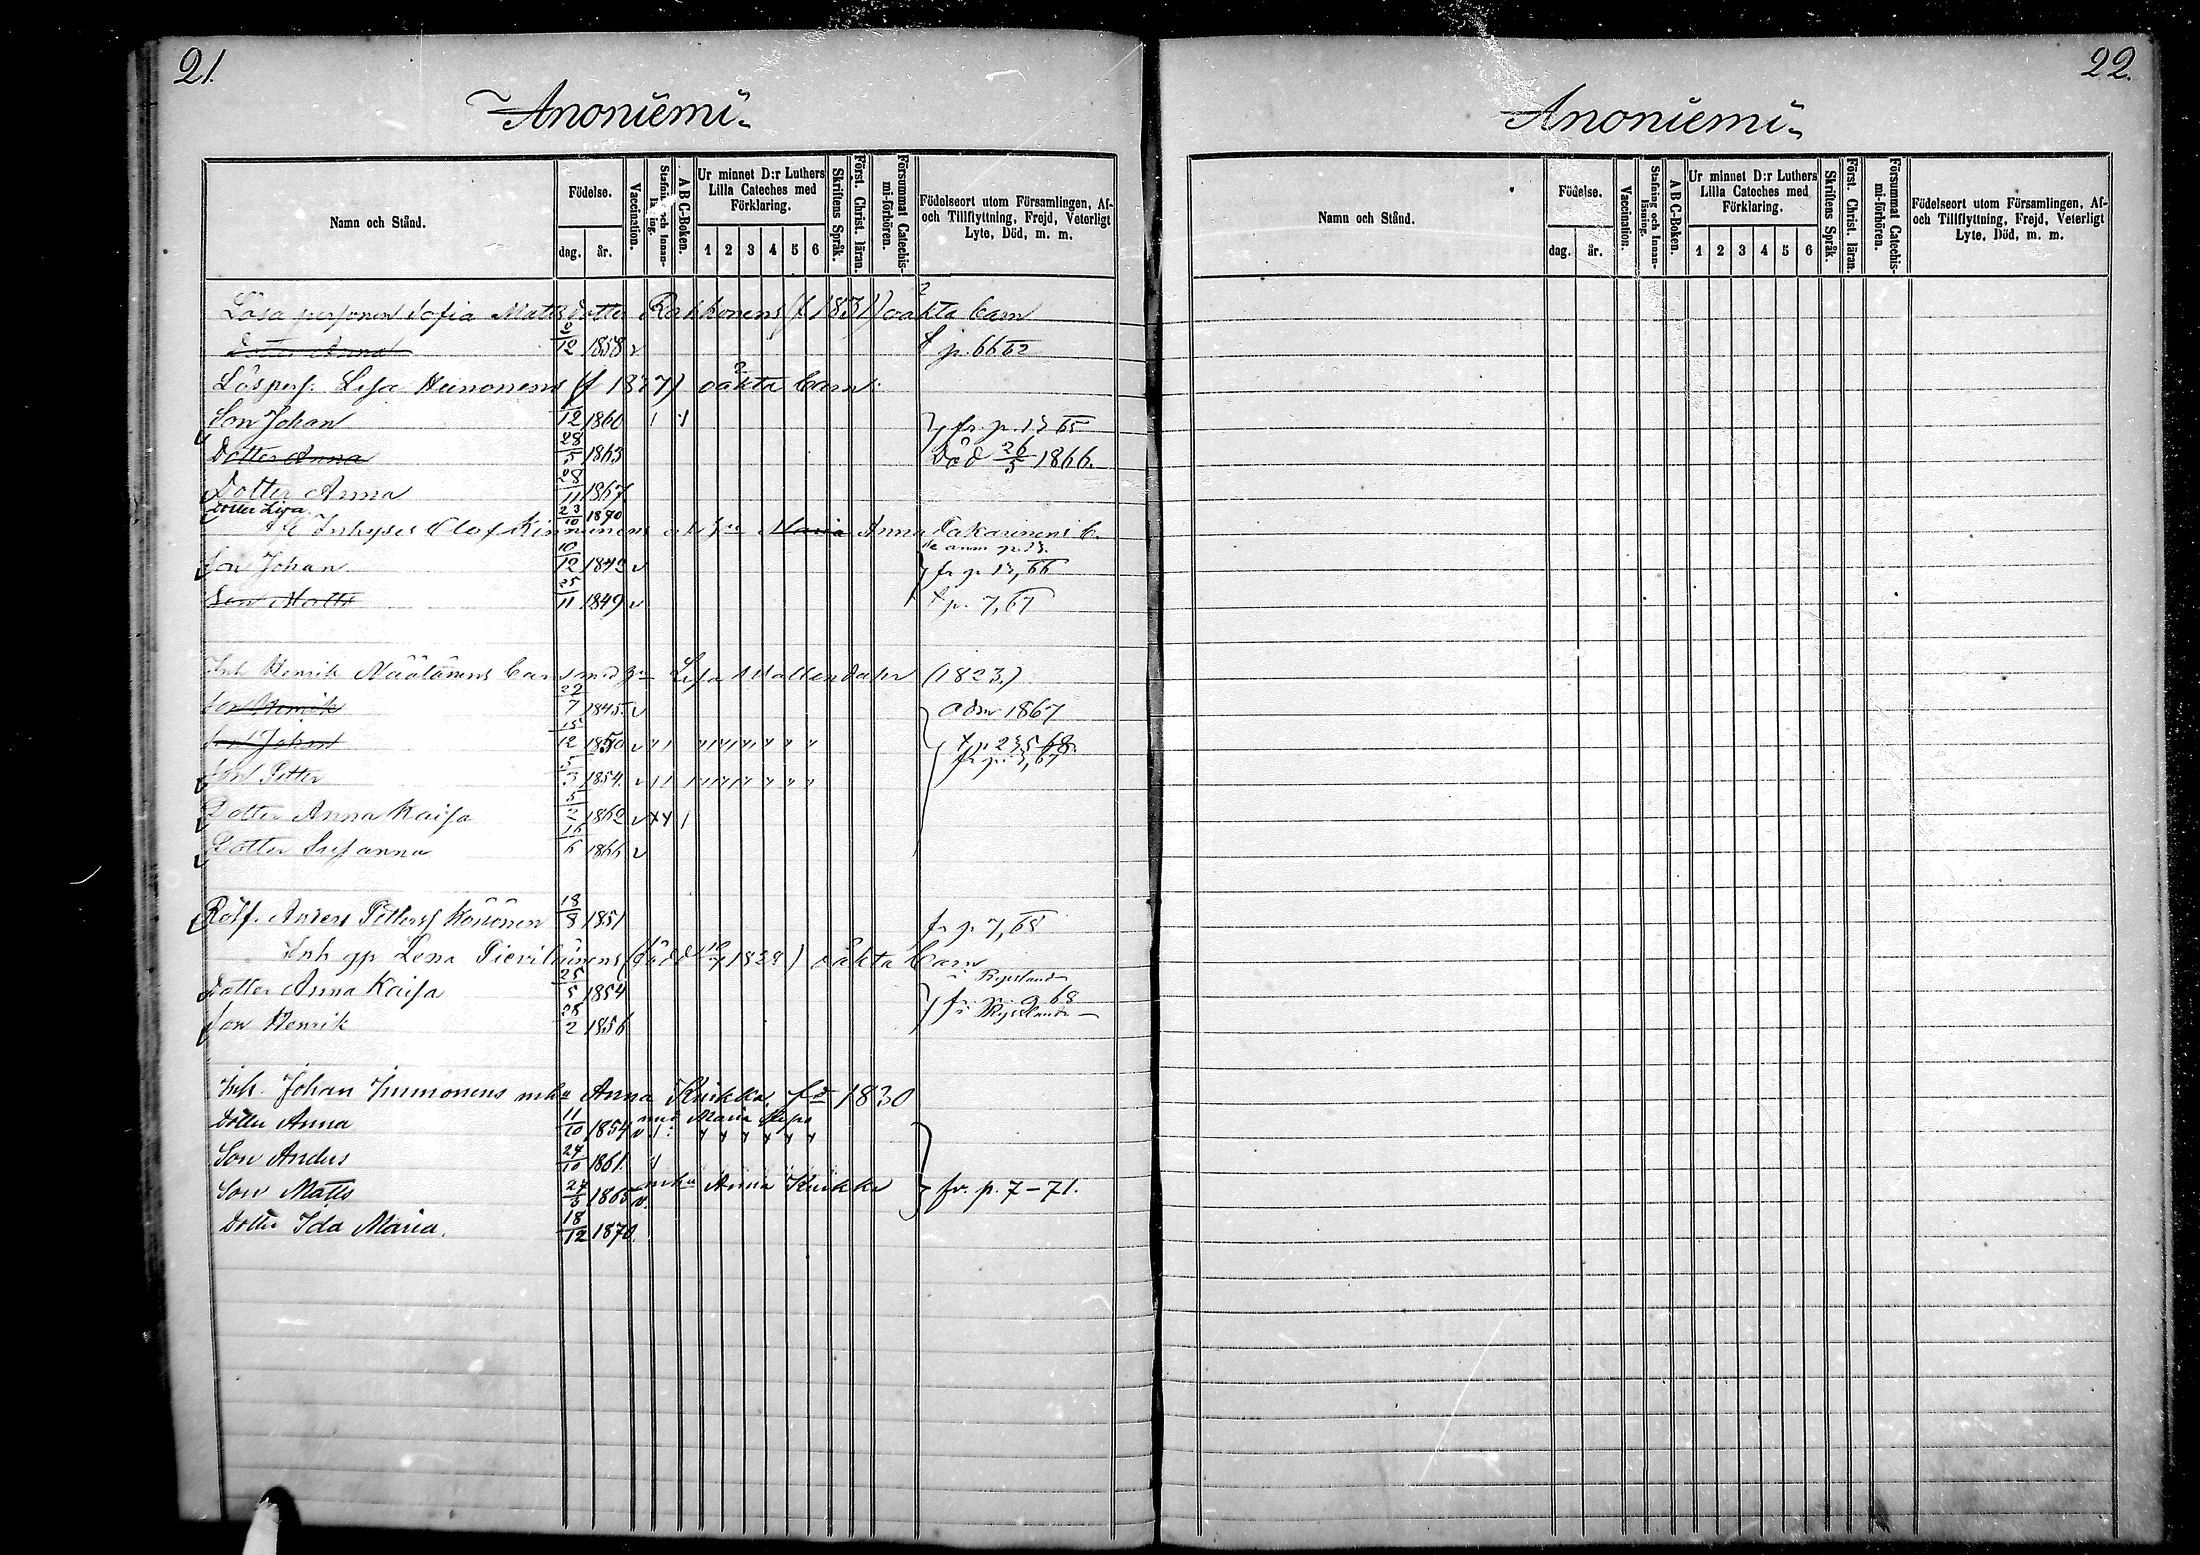 21.
Anoniemi
Namn och Stånd.
Födelse.
dag. år.
Vaccination.
Stafning och Innanläsning.
A B C-Boken.
Ur minnet D:r Luthers Lilla Cateches med Förklaring.
1 2 3 4 5 6
Skriftens Språk.
Först. Christ. läran.
Försummat Catechismi-förhören.
Födelseort utom Församlingen, Af- och Tillflyttning, Frejd, Veterligt Lyte, Död, m. m.
Lösa personen Sofia Mattsdotter (f 1831) oäkta barn
Dotter Anna 12 1858 p. 66
Löspers. Lisa Heinonens (f 1837) oäkta barn
Son Johan 12 1860 fr. p. 13 65
Dotter Anna 28/5 1863 Död 26/5 1866.
Dotter Anna 28/11 1867
Dotter Lisa 23/10 1870
Inhyses Olof Kinnunens Maria Anna Pakarinens b.
Son Johan 10/12 1842 fr p 13, 66
Son Matts 25/11 1849 p. 7, 67
Inh Henrik Määtänens Barn med Lisa (1823.)
Son Henrik 22/7 1845 1867
Son Johan 15/12 1850 p. 235 68
Son Petter 5/3 1854
Dotter Anna Kaisa 5/2 1862
Dotter Susanna 16/6 1866
Anders Petterss 18/8 1851 fr p 7, 68
Inh Lena (född 1829) oäkta barn
Dotter Anna Kaisa 25/5 1854 i Ryssland
Son Henrik 28/2 1856 i Ryssland
Inh. Johan Immonens Anna Kukka fd 1830
med Maria
Dotter Anna 11/10 1854
Son Anders 24/10 1861
Anna Kukka
Son Matts 24/3 1865 fr. p. 7-71.
Dotter Ida Maria. 18/12 1870
22.
Anoniemi
Namn och Stånd.
Födelse.
dag. år.
Vaccination.
Stafning och Innanläsning.
A B C-Boken.
Ur minnet D:r Luthers Lilla Cateches med Förklaring.
1 2 3 4 5 6
Skriftens Språk.
Först. Christ. läran.
Försummat Catechismi-förhören.
Födelseort utom Församlingen, Af- och Tillflyttning, Frejd, Veterligt Lyte, Död, m. m.